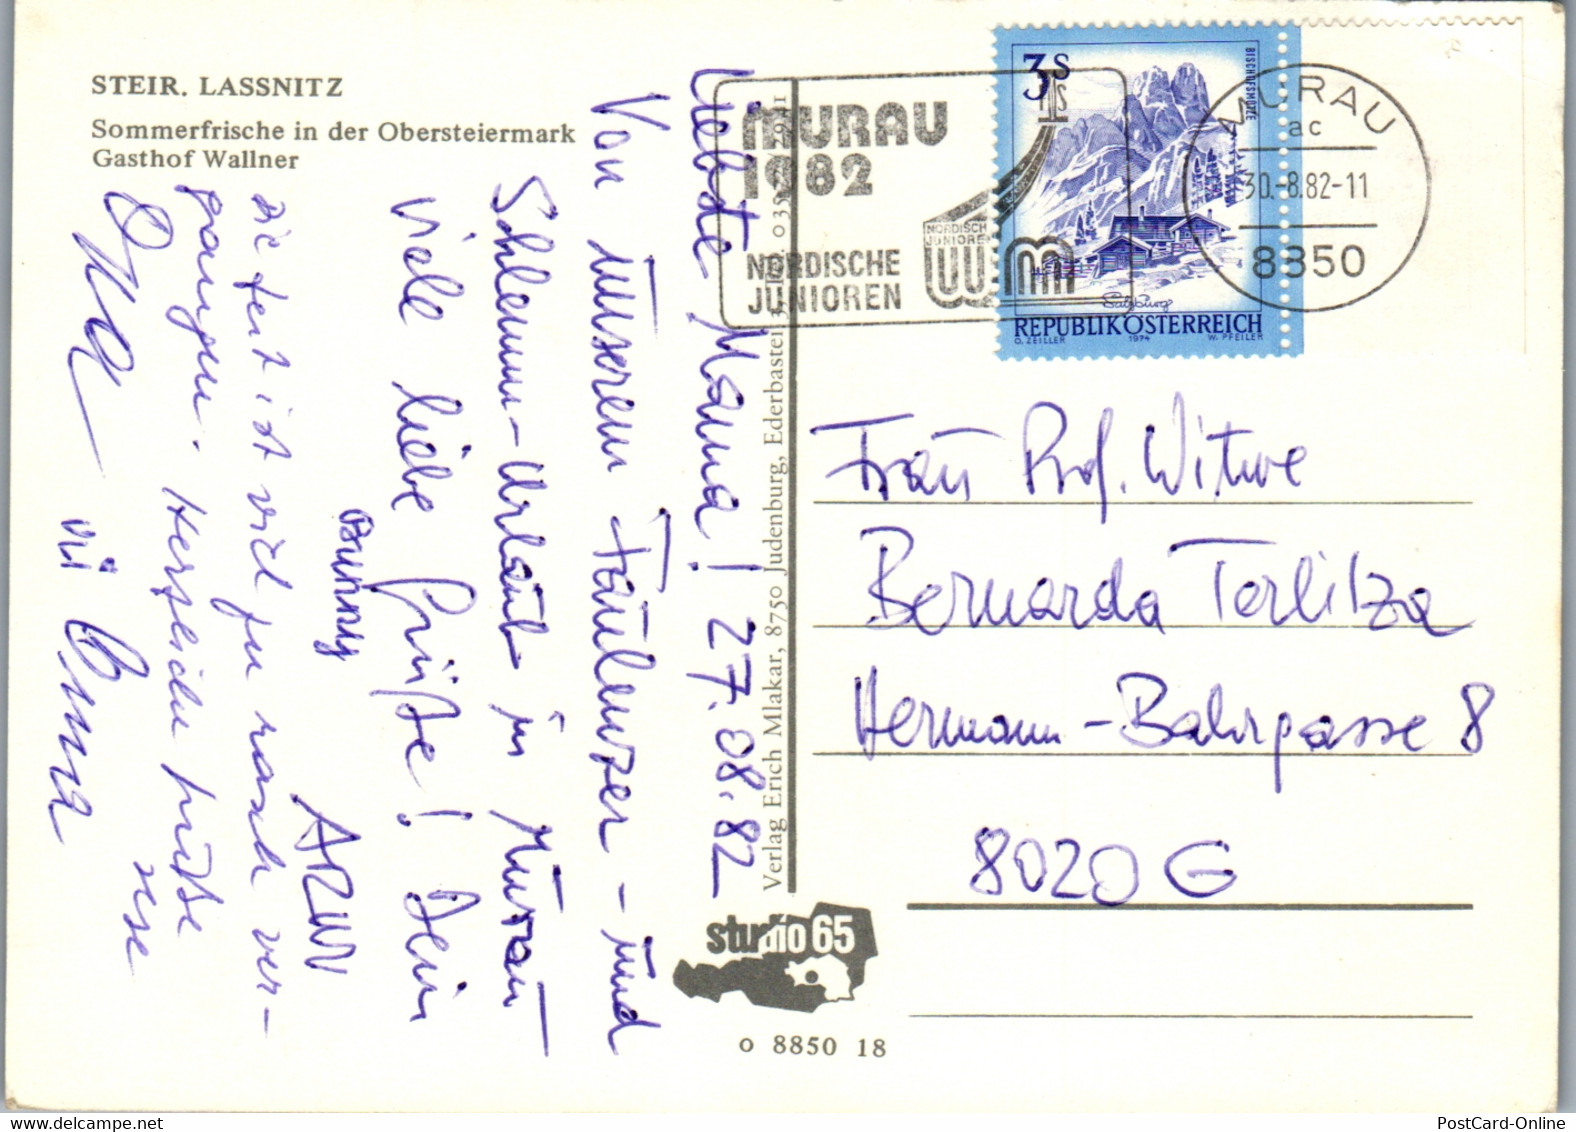 STEIR. LASSNITZ
Sommerfrische in der Obersteiermark
Gasthof Wallner
Liebste Mama! 27.08.82
Von unserem Faulenzer - und
Schlemm-Urlaub in Murau
viele liebe Grüße! Dein
Bunny
ARW
die Zeit ist viel zu rasch ver-
gangen. Herzliche Grüße
Verlag Erich Mlakar, 8750 Judenburg, Ederbastei 3, Tel. 03572
studio 65
o 8850 18
MURAU
1982
NORDISCHE
JUNIOREN
NORDISCHE
JUNIOREN
WM
3S
BISCHOFSMÜTZE
Salzburg
REPUBLIK ÖSTERREICH
O. ZEILLER 1974 W. PFEILER
MURAU
ac
30.-8.82-11
8850
Frau Prof. Witwe
Bernarda Terlitza
Hermann-Bahrgasse 8
8020 G
PostCard-Online